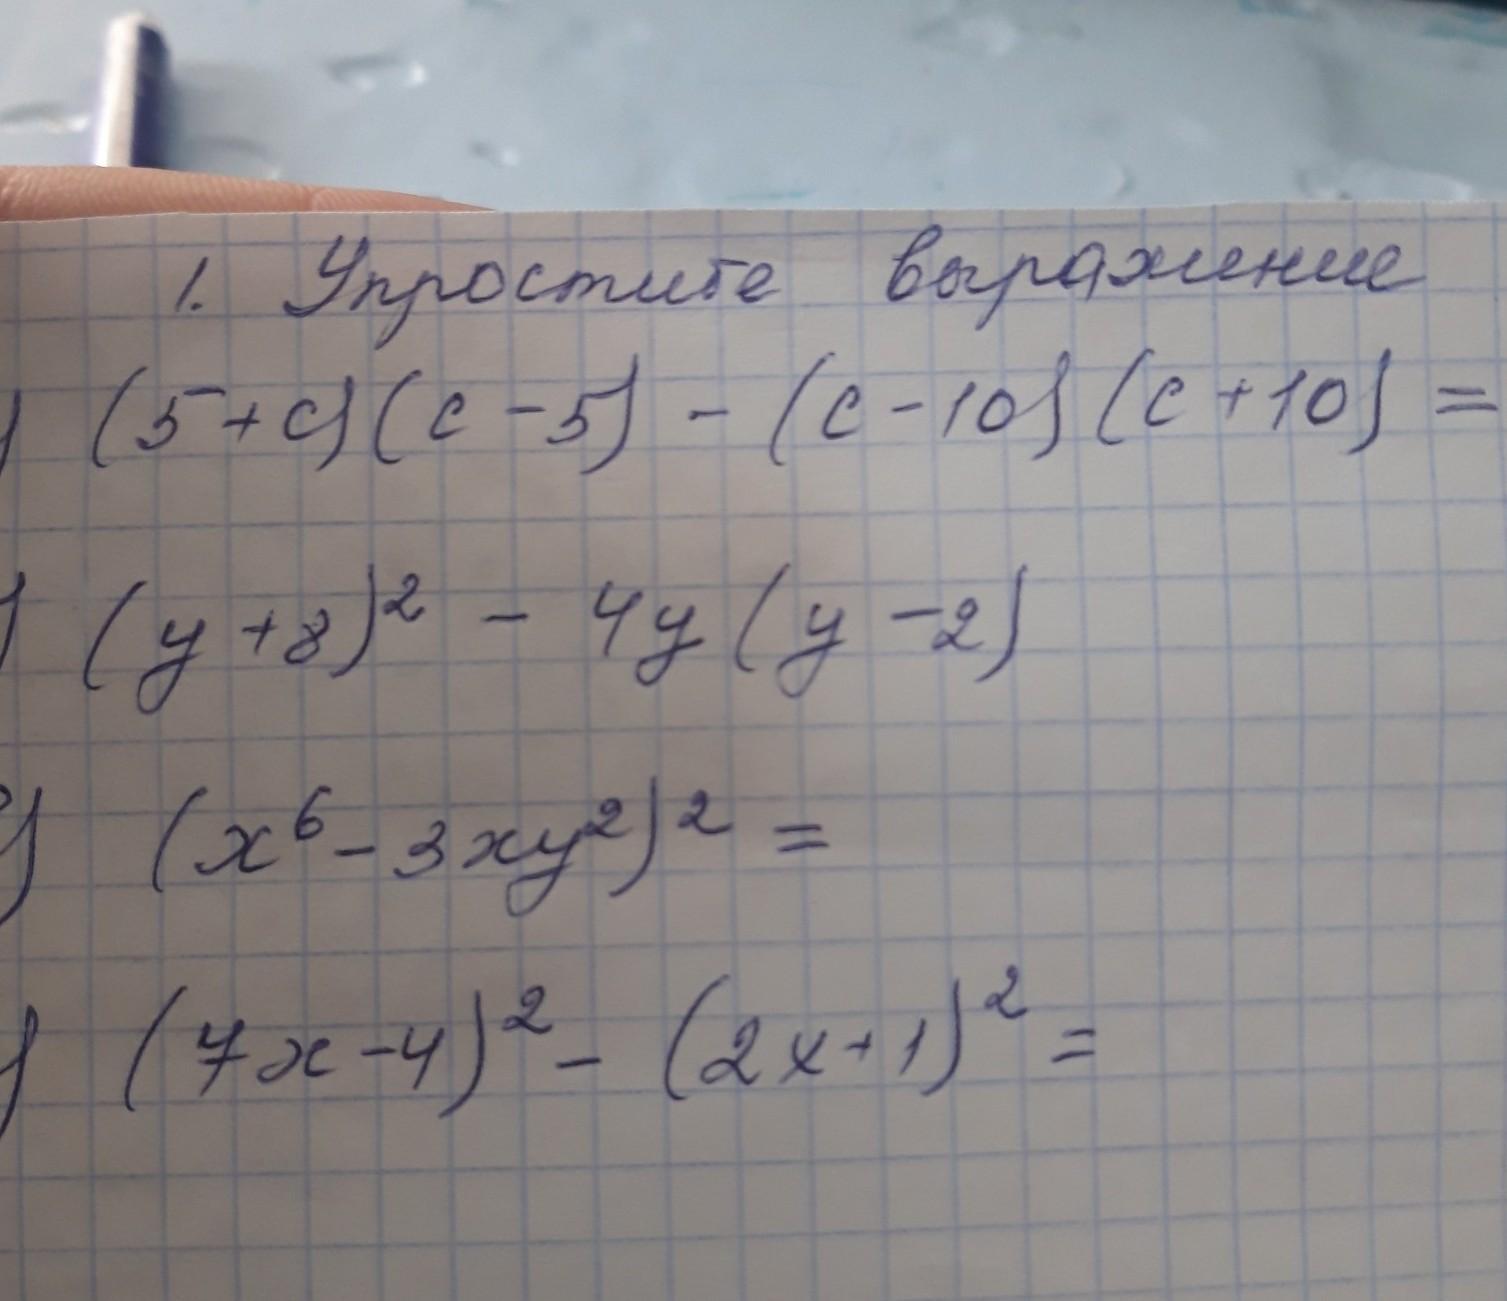 1. Упростите выражение
) (5+c)(c-5) - (c-10)(c+10) =
) (y+8)² - 4y(y-2)
) (x⁶-3xy²)² =
) (7x-4)² - (2x+1)² =